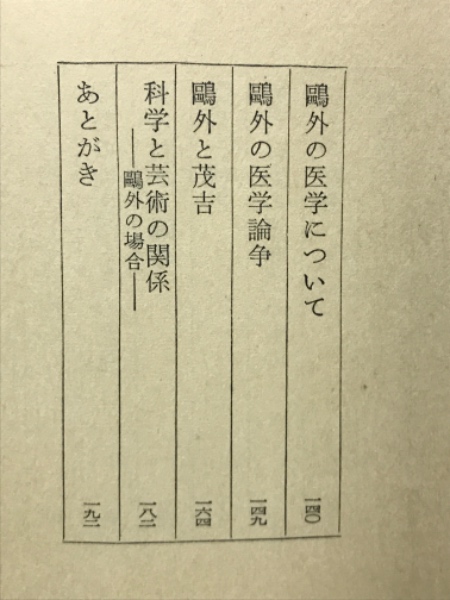 鷗外の医学について 一四〇
鷗外の医学論争 一四九
鷗外と茂吉 一六四
科学と芸術の関係
――鷗外の場合―― 一八二
あとがき 一九二